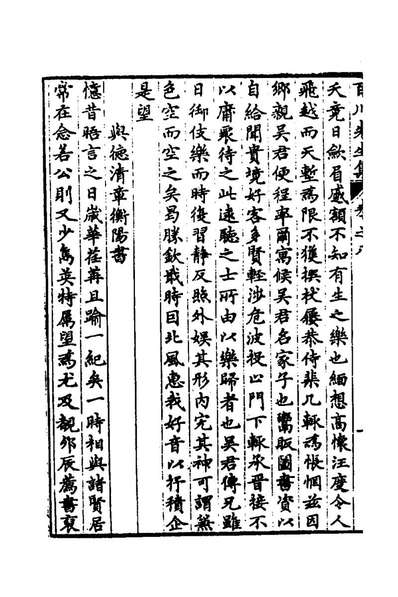 天竟日歛眉蹙額不知有生之樂也緬想高懷汪度令人
飛越而天塹爲限不獲撰杖屨恭侍棐几輒爲悵惘茲因
鄉親吳君便程率爾寓候吳君名家子也鬻販圖書資以
自給聞貴境好客多賢輕涉危波投止門下輒承晋接不
以庸衆待之此遠聽之士所由以樂歸者也吳君傳兄雖
日御伎樂而時復習靜反照外娛其形内完其神可謂無
色空而空之矣曷勝欽戢時因北風惠我好音以抒積企
是望
與德清章衡陽書
憶昔晤言之日歲華荏苒且踰一紀矣一時相與諸賢居
常在念若公則又少雋英特屬望爲尤及覩邜辰薦書裒